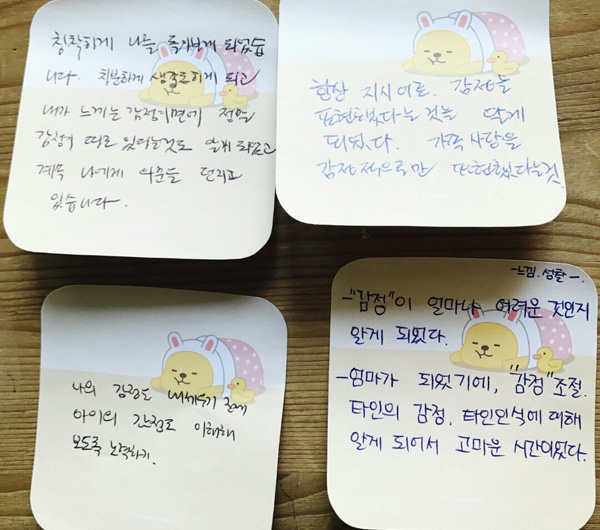 침착하게 나를 돌아보게 되었습
니다. 차분하게 생각도하게 되고
내가 느끼는 감정이면에 정말
감정이 따로 있다는것도 알게 되었고
계속 나에게 질문을 던지고
있습니다.
항상 지시어로. 감정을
표현했다는 것을 알게
되었다. 가족 사랑을
감정적으로만 표현했다는것.
나의 감정도 내세우기 전에
아이의 감정도 이해해
보도록 노력하기.
-느낌. 성찰-.
-"감정"이 얼마나 어려운 것인지
알게 되었다.
-엄마가 되었기에, "감정"조절.
타인의 감정, 타인인식에 대해
알게 되어서 고마운 시간이었다.